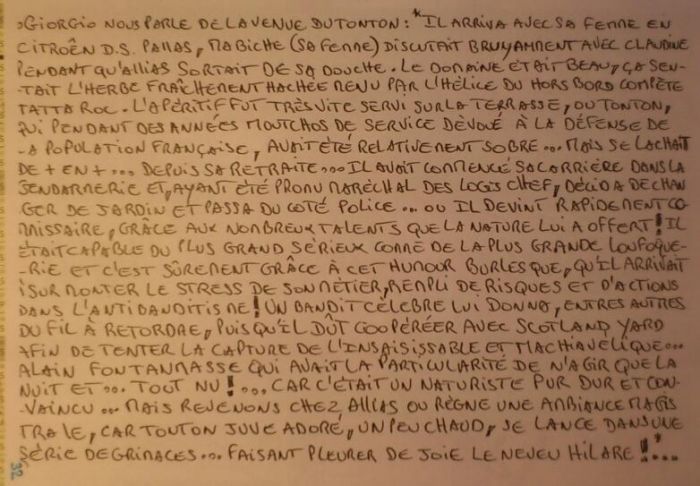 >GIORGIO NOUS PARLE DE LA VENUE DU TONTON : *IL ARRIVA AVEC SA FEMME EN
CITROËN D.S. PALLAS, MABICHE (SA FEMME) DISCUTAIT BRUYAMMENT AVEC CLAUDINE
PENDANT QU'ALLIAS SORTAIT DE SA DOUCHE. LE DOMAINE ÉTAIT BEAU, ÇA SEN-
TAIT L'HERBE FRAÎCHEMENT HACHÉE MENU PAR L'HÉLICE DU HORS BORD COMPÈTE
TATTA ROC. L'APÉRITIF FUT TRÈS VITE SERVI SUR LA TERRASSE, OU TONTON,
QUI PENDANT DES ANNÉES MOUTCHOS DE SERVICE DÉVOUÉ À LA DÉFENSE DE
LA POPULATION FRANÇAISE, AVAIT ÉTÉ RELATIVEMENT SOBRE... MAIS SE LACHAIT
DE + EN +... DEPUIS SA RETRAITE... IL AVAIT COMMENCÉ SA CARRIÈRE DANS LA
GENDARMERIE ET, AYANT ÉTÉ PROMU MARÉCHAL DES LOGIS CHEF, DÉCIDA DE CHAN
GER DE JARDIN ET PASSA DU COTÉ POLICE... OU IL DEVINT RAPIDEMENT CO
MISSAIRE, GRÂCE AUX NOMBREUX TALENTS QUE LA NATURE LUI A OFFERT! IL
ÉTAIT CAPABLE DU PLUS GRAND SÉRIEUX COMME DE LA PLUS GRANDE LOUFOQUE-
-RIE ET C'EST SÛREMENT GRÂCE À CET HUMOUR BURLESQUE, QU'IL ARRIVAIT
À SURMONTER LE STRESS DE SON MÉTIER, REMPLI DE RISQUES ET D'ACTIONS
DANS L'ANTIBANDITISME! UN BANDIT CÉLÈBRE LUI DONNA, ENTRES AUTRES
DU FIL À RETORDRE, PUISQU'IL DÛT COOPÉRÉER AVEC SCOTLAND YARD
AFIN DE TENTER LA CAPTURE DE L'INSAISISSABLE ET MACHIAVELIQUE...
ALAIN FONTANMASSE QUI AVAIT LA PARTICULARITÉ DE N'AGIR QUE LA
NUIT ET... TOUT NU!... CAR C'ÉTAIT UN NATURISTE PUR DUR ET CON-
-VAINCU... MAIS REVENONS CHEZ ALLIAS OU RÈGNE UNE AMBIANCE MAGIS
TRALE, CAR TONTON JUVE ADORÉ, UN PEU CHAUD, SE LANCE DANS UNE
SÉRIE DE GRIMACES... FAISANT PLEURER DE JOIE LE NEVEU HILARE!*...
32